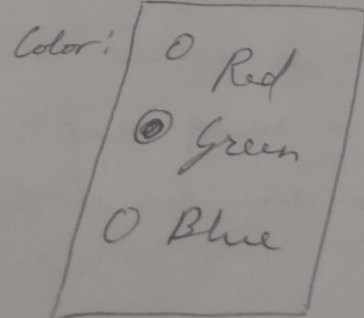 Color:
Red
Green
Blue